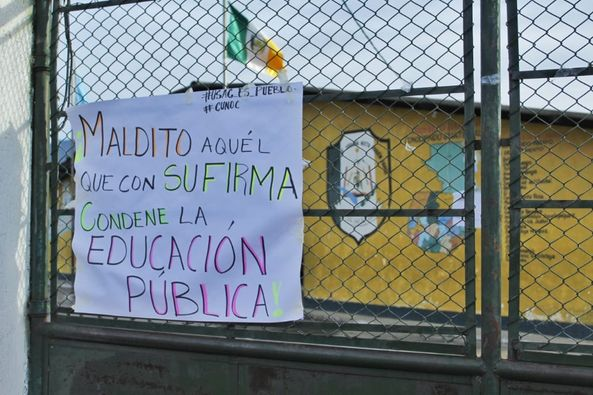 #USAC_ES_PUEBLO.
#CUNOC
¡MALDITO AQUÉL
QUE CON SU FIRMA
CONDENE LA
EDUCACIÓN
PÚBLICA!